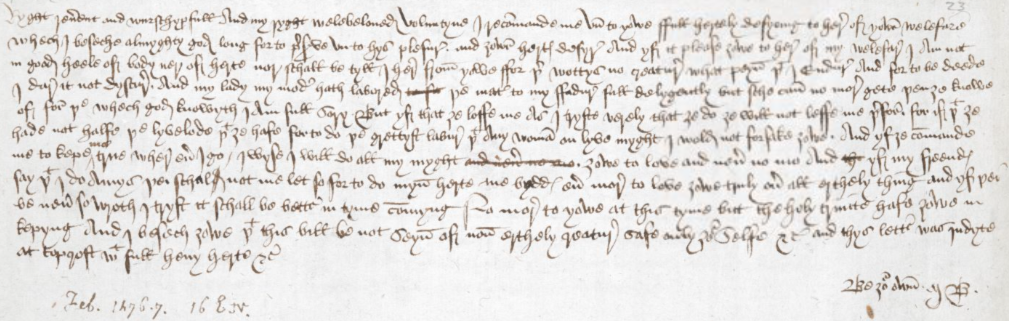 Ryght reu͛ent and wurschypfull And my ryght welebeloued Voluntyne I recōmande me vn to yowe ffull hertely desyring to her͛ of yowr͛ welefare
whech I beseche almyghty god long for to p͛sˀve vn to hys plesur͛ and ȝowr͛ hert͛ desyr͛ And yf it please ȝowe to her͛ of my welefar͛ I Am not
in good heele of body ner of herte nor schall be tyll I her͛ from yowe ffor þͬ wottys no creatur͛ what peyn þͭ I Endur͛ And for to be deede
I dar͛ it not dyscur͛ And my lady my mod͛ hath labored þe mat͛ to my ffadur͛ full delygently but sche can no mor͛ gete þen ȝe knowe
of for͛ þe whech god knowyth I Am full Sory But yf that ȝe loffe me As I tryste verely that ȝe do ȝe will not leffe me þ͛for͛ for if þͭ ȝe
hade not halfe þe lyvelode þͭ ȝe hafe for to do þe grettyst labur͛ þͭ Any woman on lyve myght I wold not forsake ȝowe And yf ȝe cōmande
me to kepe me true wher eu͛ I go I wyse I will do all my myght ȝowe to love and neu͛ no mo And yf my freend͛
say þͭ I do Amys þei schal not me let so for to do myn͛ herte me bydd͛ eu͛ mor͛ to love ȝowe truly ou͛ all erthely thing and yf þei
be neu͛ so wroth I tryst it schall be bett͛ in tyme cōmyng No mor͛ to yowe at this tyme but the holy trinite hafe ȝowe in
kepyng And I besech ȝowe þͭ this bill be not seyn͛ of non͛ erthely creatur͛ safe only ȝoˀ Selfe &c and thys lett͛ was indyte
at topcroft wͭ full hevy herte &c
Be ȝoˀ own͛ M B.
Feb. 1476.7. 16 E.IV.
23